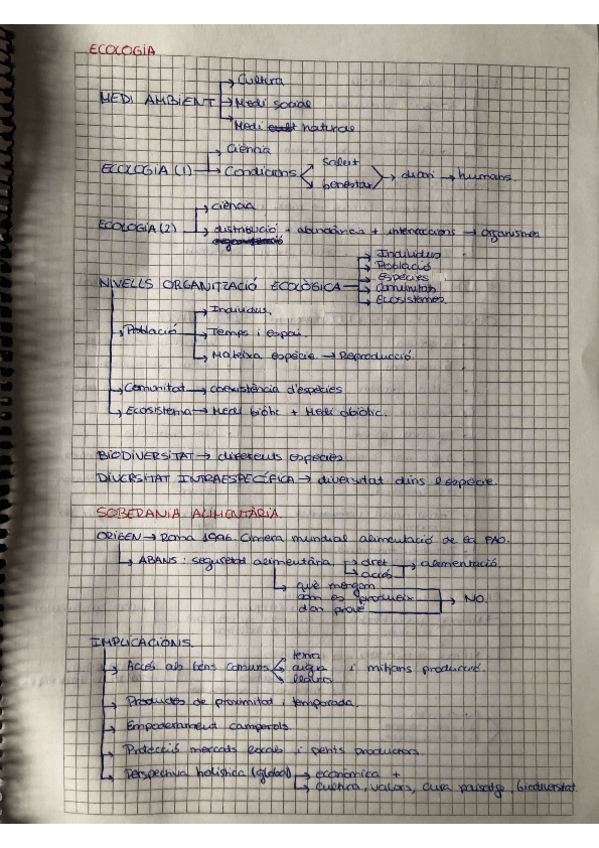 ECOLOGIA
→ Cultura
MEDI AMBIENT → Medi social
→ Medi natural
→ Ciència
ECOLOGIA (1) → Condicions < salut benestar > → diari → humans.
→ ciència
ECOLOGIA (2) → distribució + abundància + interaccions → organismes
→ Individus
→ Població
→ Espècies
NIVELLS ORGANITZACIÓ ECOLÒGICA → Comunitats
→ Ecosistemes.
→ Individus.
→ Població → Temps i espai.
→ Mateixa espècie. → Reproducció.
→ Comunitat → coexistència d'espècies
→ Ecosistema → Medi biòtic + Medi abiòtic.
BIODIVERSITAT → diferents espècies
DIVERSITAT INTRAESPECÍFICA → diversitat dins l'espècie.
SOBERANIA ALIMENTÀRIA.
ORIGEN → Roma 1996. Cimera mundial alimentació de la FAO.
→ ABANS: seguretat alimentària → dret → alimentació.
→ accés
→ què mengem
com es produeix → NO.
d'on prové
IMPLICACIONS.
→ Accés als béns comuns < terra aigua llavors i mitjans producció.
→ Productes de proximitat i temporada.
→ Empoderament camperols.
→ Protecció mercats locals i petits productors.
→ Perspectiva holística (global) → econòmica +
→ cultura, valors, cura paisatge, biodiversitat.